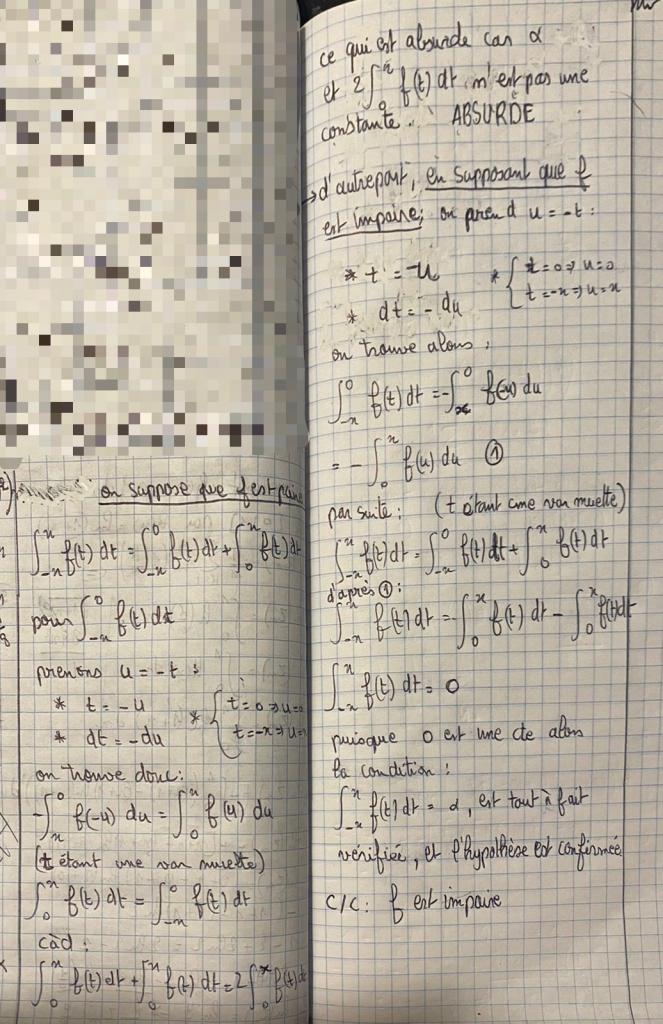 on suppose que f est paire
∫_{-x}^{x} f(t) dt = ∫_{-x}^{0} f(t) dt + ∫_{0}^{x} f(t) dt
pour ∫_{-x}^{0} f(t) dt
prenons u = -t :
* t = -u
* dt = -du
* { t = 0 ⇒ u = 0
t = -x ⇒ u =
on trouve donc :
-∫_{x}^{0} f(-u) du = ∫_{0}^{x} f(u) du
(t étant une var muette)
∫_{0}^{x} f(t) dt = ∫_{-x}^{0} f(t) dt
càd :
∫_{0}^{x} f(t) dt + ∫_{0}^{x} f(t) dt = 2∫_{0}^{x} f(t) dt
ce qui est absurde car α
et 2∫_{0}^{x} f(t) dt n'est pas une
constante. ABSURDE
→ d'autre part, en supposant que f
est impaire; on prend u = -t :
* t = -u
* { t = 0 ⇒ u = 0
t = -x ⇒ u = x
* dt = -du
on trouve alors :
∫_{-x}^{0} f(t) dt = -∫_{x}^{0} f(-u) du
= -∫_{0}^{x} f(u) du ①
par suite : (t étant une var muette)
∫_{-x}^{x} f(t) dt = ∫_{-x}^{0} f(t) dt + ∫_{0}^{x} f(t) dt
d'après ① :
∫_{-x}^{x} f(t) dt = -∫_{0}^{x} f(t) dt - ∫_{0}^{x} f(t) dt
∫_{-x}^{x} f(t) dt = 0
puisque 0 est une cte alors
la condition :
∫_{-x}^{x} f(t) dt = α, est tout à fait
vérifiée, et l'hypothèse est confirmée
C/C : f est impaire